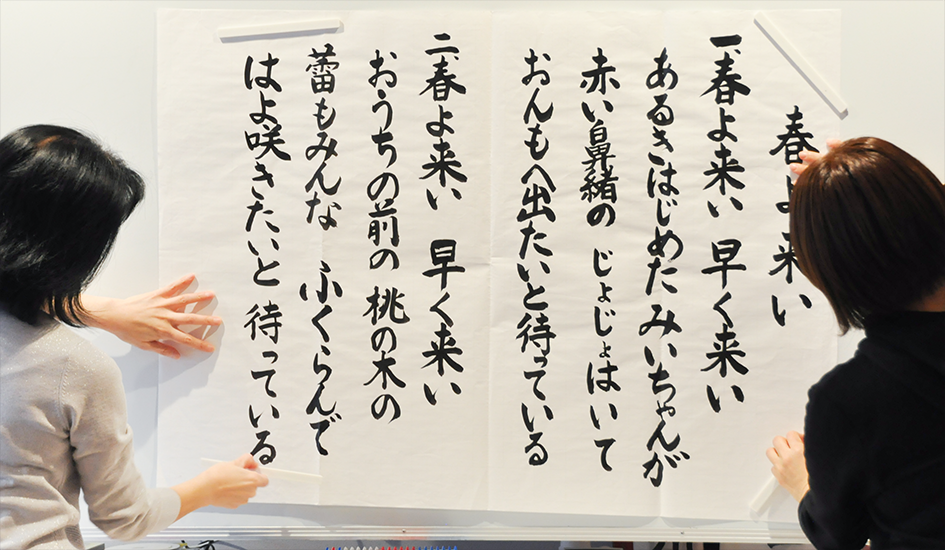 春よ来い
一、春よ来い 早く来い
あるきはじめた みいちゃんが
赤い鼻緒の じょじょはいて
おんもへ出たいと待っている
二、春よ来い 早く来い
おうちの前の 桃の木の
蕾もみんな ふくらんで
はよ咲きたいと 待っている